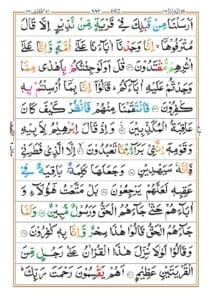 اَرْسَلْنَا مِنْ قَبْلِكَ فِیْ قَرْیَةٍ مِّنْ نَّذِیْرٍ اِلَّا قَالَ
مُتْرَفُوْهَاۤ ۙ اِنَّا وَجَدْنَاۤ اٰبَآءَنَا عَلٰۤی اُمَّةٍ وَّاِنَّا عَلٰۤی
اٰثٰرِهِمْ مُّقْتَدُوْنَ قٰلَ اَوَلَوْ جِئْتُكُمْ بِاَهْدٰی مِمَّا
وَجَدْتُّمْ عَلَیْهِ اٰبَآءَكُمْ ؕ قَالُوْۤا اِنَّا بِمَاۤ اُرْسِلْتُمْ بِهٖ
كٰفِرُوْنَ فَانْتَقَمْنَا مِنْهُمْ فَانْظُرْ كَیْفَ كَانَ
عَاقِبَةُ الْمُكَذِّبِیْنَ وَاِذْ قَالَ اِبْرٰهِیْمُ لِاَبِیْهِ
وَقَوْمِهٖۤ اِنَّنِیْ بَرَآءٌ مِّمَّا تَعْبُدُوْنَ اِلَّا الَّذِیْ فَطَرَنِیْ
فَاِنَّهٗ سَیَهْدِیْنِ وَجَعَلَهَا كَلِمَةًۢ بَاقِیَةً فِیْ
عَقِبِهٖ لَعَلَّهُمْ یَرْجِعُوْنَ بَلْ مَتَّعْتُ هٰۤؤُلَآءِ وَ
اٰبَآءَهُمْ حَتّٰی جَآءَهُمُ الْحَقُّ وَرَسُوْلٌ مُّبِیْنٌ وَلَمَّا
جَآءَهُمُ الْحَقُّ قَالُوْا هٰذَا سِحْرٌ وَّاِنَّا بِهٖ كٰفِرُوْنَ
وَقَالُوْا لَوْلَا نُزِّلَ هٰذَا الْقُرْاٰنُ عَلٰی رَجُلٍ مِّنَ
الْقَرْیَتَیْنِ عَظِیْمٍ اَهُمْ یَقْسِمُوْنَ رَحْمَتَ رَبِّكَ